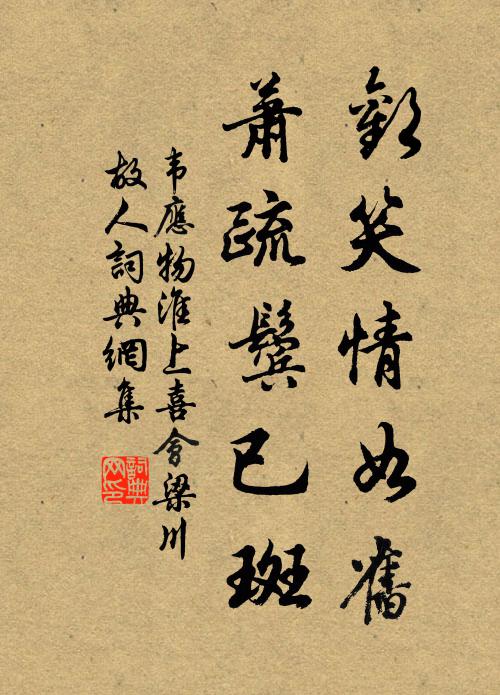 歡笑情如舊
蕭疏鬢已斑
韦應物淮上喜會梁川
故人詞典網集
詞典
网印